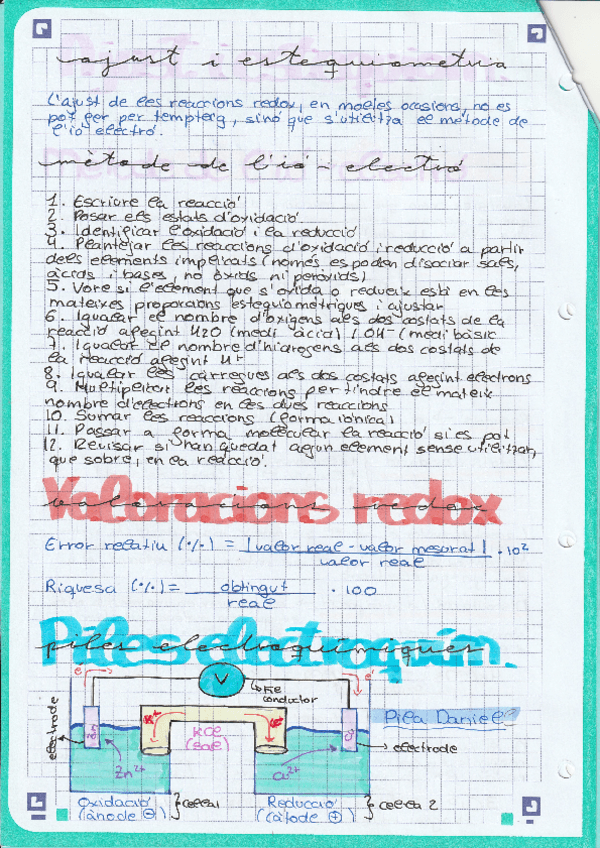 ajust i estequiometria
L'ajust de les reaccions redox, en moltes ocasions, no es
pot fer per tempteig, sinó que s'utilitza el mètode de
l'ió electró.
mètode de l'ió-electró
1. Escriure la reacció
2. Posar els estats d'oxidació
3. Identificar l'oxidació i la reducció
4. Plantejar les reaccions d'oxidació i reducció a partir
dels elements implicats (només es poden disociar sals,
àcids i bases, no òxids ni peròxids)
5. Vore si l'element que s'oxida o redueix està en les
mateixes proporcions estequiomètriques i ajustar
6. Igualar el nombre d'oxígens als dos costats de la
reacció afegint H2O (medi àcid) / OH- (medi bàsic
7. Igualar el nombre d'hidrogens als dos costats de
la reacció afegint H+
8. Igualar les càrregues als dos costats afegint electrons
9. Multiplicar les reaccions per tindre el mateix
nombre d'electrons en les dues reaccions
10. Sumar les reaccions (forma iònica)
11. Passar a forma mollecular la reacció si es pot
12. Revisar si han quedat algun element sense utilitzar,
que sobre, en la reacció.
Valoracions redox
valoracions redox
Error relatiu (%) = |valor real - valor mesurat| / valor real · 10²
Riquesa (%) = obtingut / real · 100
Piles electroquím.
piles electroquímiques
e- V e-
fil conductor
Pila Daniel
electrode
KCl
(sal)
electrode
Zn²⁺ Cu²⁺
Oxidació } cel·la 1 Reducció } cel·la 2
(ànode ⊖) (càtode ⊕)